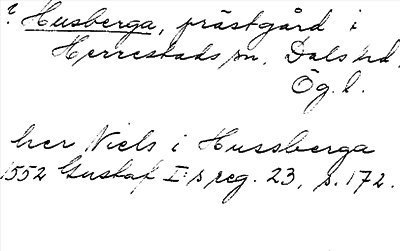 ? Husberga, prästgård i
Herrestads sn, Dals hd.
Ög. l.
her Niels i Hussberga
1552 Gustaf I:s reg. 23, s. 172.